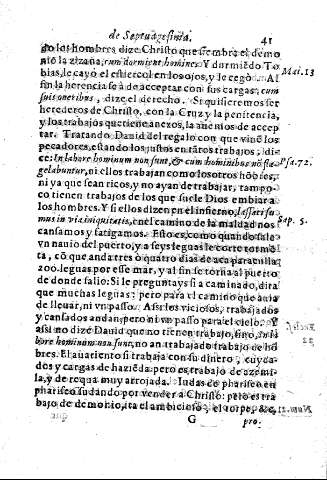 de Septuagesima. 41
do los hombres dize Christo que siembra el demo
nio la zizaña, cum dormirent homines. Y durmiedo To
bias, le cayó el estiercol en los ojos, y le cegò. Al Mat. 13
fin la herencia se à de acceptar con sus cargas, cum
suis oneribus, dize el derecho. Si quisieremos ser
herederos de Christo, con la Cruz y la penitencia,
y los trabajos que tiene anexos, la auemos de accep
tar. Tratando Dauid del regalo con que viuẽ los
pecadores, estando los justos en tãtos trabajos, di
ce: In labore hominum non sunt, & cum hominibus nõ fla- Psa. 72.
gelabuntur, ni ellos trabajan como los otros hõbres,
ni ya que sean ricos, y no ayan de trabajar, tampo-
co tienen trabajos de los que suele Dios embiar a
los hombres. Y si ellos dizen en el infierno, lassati su
mus in via iniquitatis, en el camino de la maldad nos Sap. 5.
cansamos y fatigamos. Esto es, como quando sale
vn nauio del puerto, y a seys leguas le corre tormẽ
ta, cõ que anda tres ò quatro dias de aca para alla
200. leguas por esse mar, y al fin se torna al puerto
de donde salio: Si le preguntays si a caminado, dira
que muchas leguas: pero para el camino que auia
de lleuar, ni vn passo. Assi los viciosos, trabajados
y cansados andan: pero ni vn passo para el cielo. Y
assi no dize Dauid que no tienen trabajo, sino, In la
bore hominum non sunt, no an trabajado trabajo de hõ
bres. El auariento si trabaja con su dinero, cuyda-
dos y cargas de haziẽda: pero es trabajo de azemi-
la, y de requa muy arrojada. Iudas co phariseo en
phariseo sudando por vender a Christo: pero es tra
bajo de demonio, ita el ambicioso, el torpe, &c.
G pro-